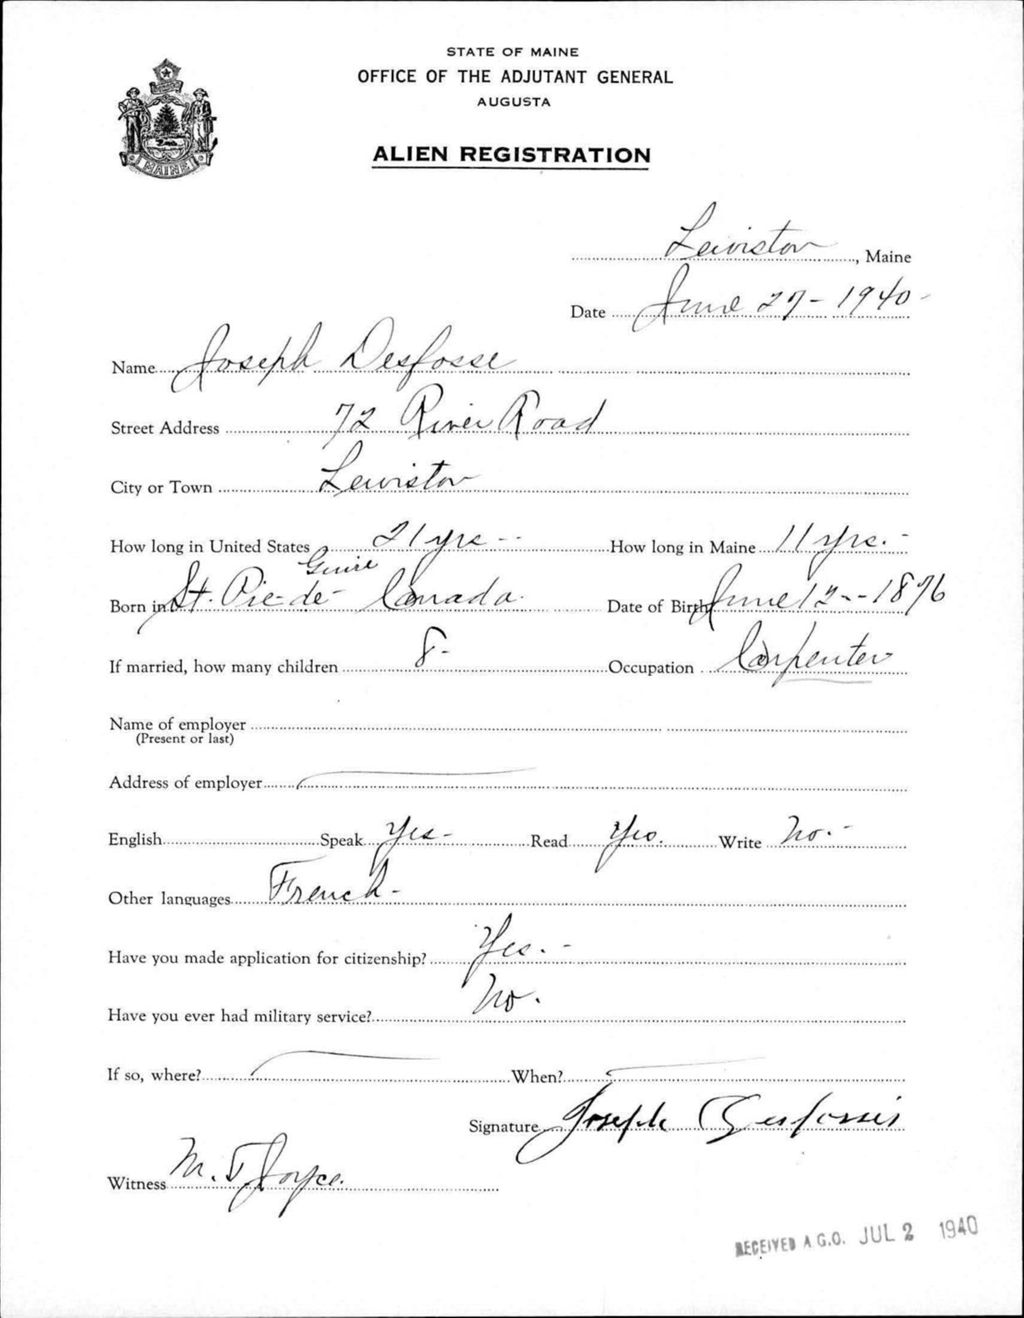 STATE OF MAINE
OFFICE OF THE ADJUTANT GENERAL
AUGUSTA
ALIEN REGISTRATION
MAINE
Lewiston, Maine
Date June 27-1940-
Name Joseph Desfosse
Street Address 72 River Road
City or Town Lewiston
How long in United States 21 yrs-- How long in Maine 11 yrs.-
Guire
Born in St. Pie-de- Canada. Date of Birth June 12--1876
If married, how many children 8- Occupation Carpenter
Name of employer
(Present or last)
Address of employer
English Speak Yes- Read Yes. Write No.-
Other languages French-
Have you made application for citizenship? Yes.-
Have you ever had military service? No.
If so, where? When?
Signature Joseph Desfosses
Witness M. T. Joyce.
RECEIVED A.G.O. JUL 2 1940